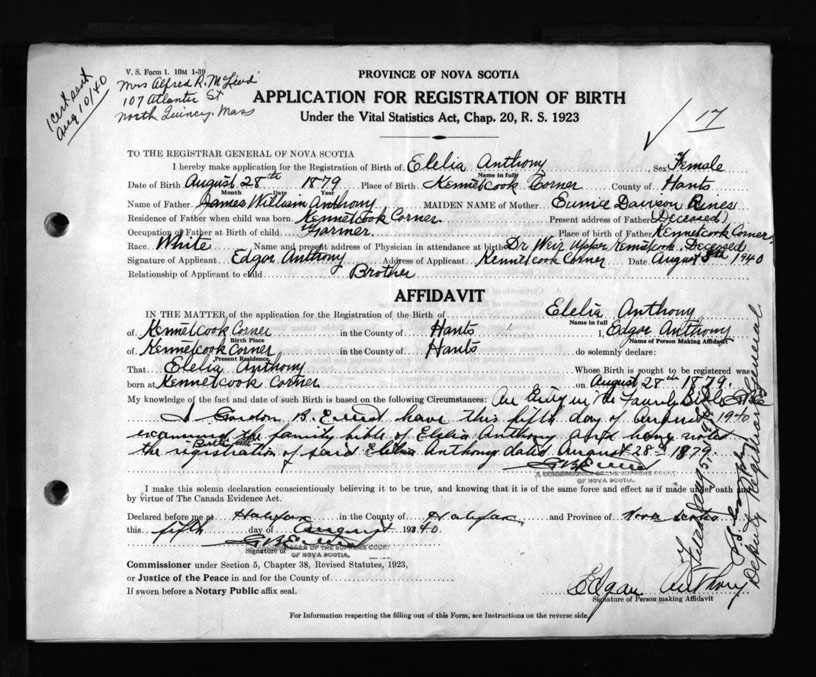 V. S. Form 1. 10M 1-39
1 cert sent
Aug 10/40
Mrs Alfred R. McLeod
107 Atlantic St
North Quincy, Mass
PROVINCE OF NOVA SCOTIA
APPLICATION FOR REGISTRATION OF BIRTH
Under the Vital Statistics Act, Chap. 20, R. S. 1923
17
TO THE REGISTRAR GENERAL OF NOVA SCOTIA
I hereby make application for the Registration of Birth of Elelia Anthony Sex Female
Name in full
Date of Birth August 28th 1879 Place of Birth Kennetcook Corner County of Hants
Month Date Year
Name of Father James William Anthony MAIDEN NAME of Mother Eunice Dawson
Residence of Father when child was born Kennetcook Corner Present address of Father (Deceased)
Occupation of Father at Birth of child Farmer Place of birth of Father Kennetcook Corner
Race White Name and present address of Physician in attendance at birth Dr Weir Upper Kennetcook, Deceased
Signature of Applicant Edgar Anthony Address of Applicant Kennetcook Corner Date August 8th 1940
Relationship of Applicant to child Brother
AFFIDAVIT
IN THE MATTER of the application for the Registration of the Birth of Elelia Anthony
Name in full
of Kennetcook Corner in the County of Hants I, Edgar Anthony
Birth Place Name of Person Making Affidavit
of Kennetcook Corner in the County of Hants do solemnly declare:
Present Residence
That Elelia Anthony Whose Birth is sought to be registered was
born at Kennetcook Corner on August 28th 1879.
My knowledge of the fact and date of such Birth is based on the following Circumstances: An Entry in the Family Bible
I Gordon B. have this fifth day of August 1940
examined the family bible of Elelia Anthony and have noted
Birth
the registration of said Elelia Anthony dated August 28th 1879.
A COMMISSIONER OF THE SUPREME COURT
OF NOVA SCOTIA.
I make this solemn declaration conscientiously believing it to be true, and knowing that it is of the same force and effect as if made under oath and
by virtue of The Canada Evidence Act.
Declared before me at Halifax in the County of Halifax and Province of Nova Scotia
this fifth day of August 1940
Signature of
OF THE SUPREME COURT
OF NOVA SCOTIA.
Commissioner under Section 5, Chapter 38, Revised Statutes, 1923,
or Justice of the Peace in and for the County of
If sworn before a Notary Public affix seal.
Edgar Anthony
Signature of Person making Affidavit
For Information respecting the filling out of this Form, see Instructions on the reverse side.
Deputy Registrar General